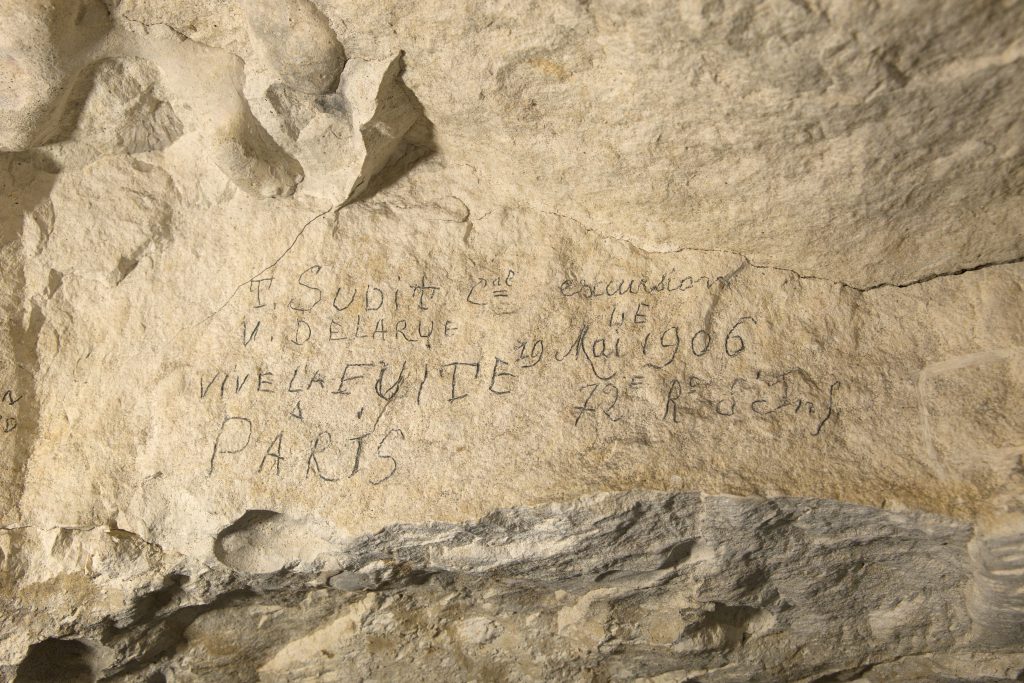 T. SUDIT 2de excursion
V. DELARUE LE
VIVE LA FUITE 19 Mai 1906
A 72E Rt d'Inf
PARIS